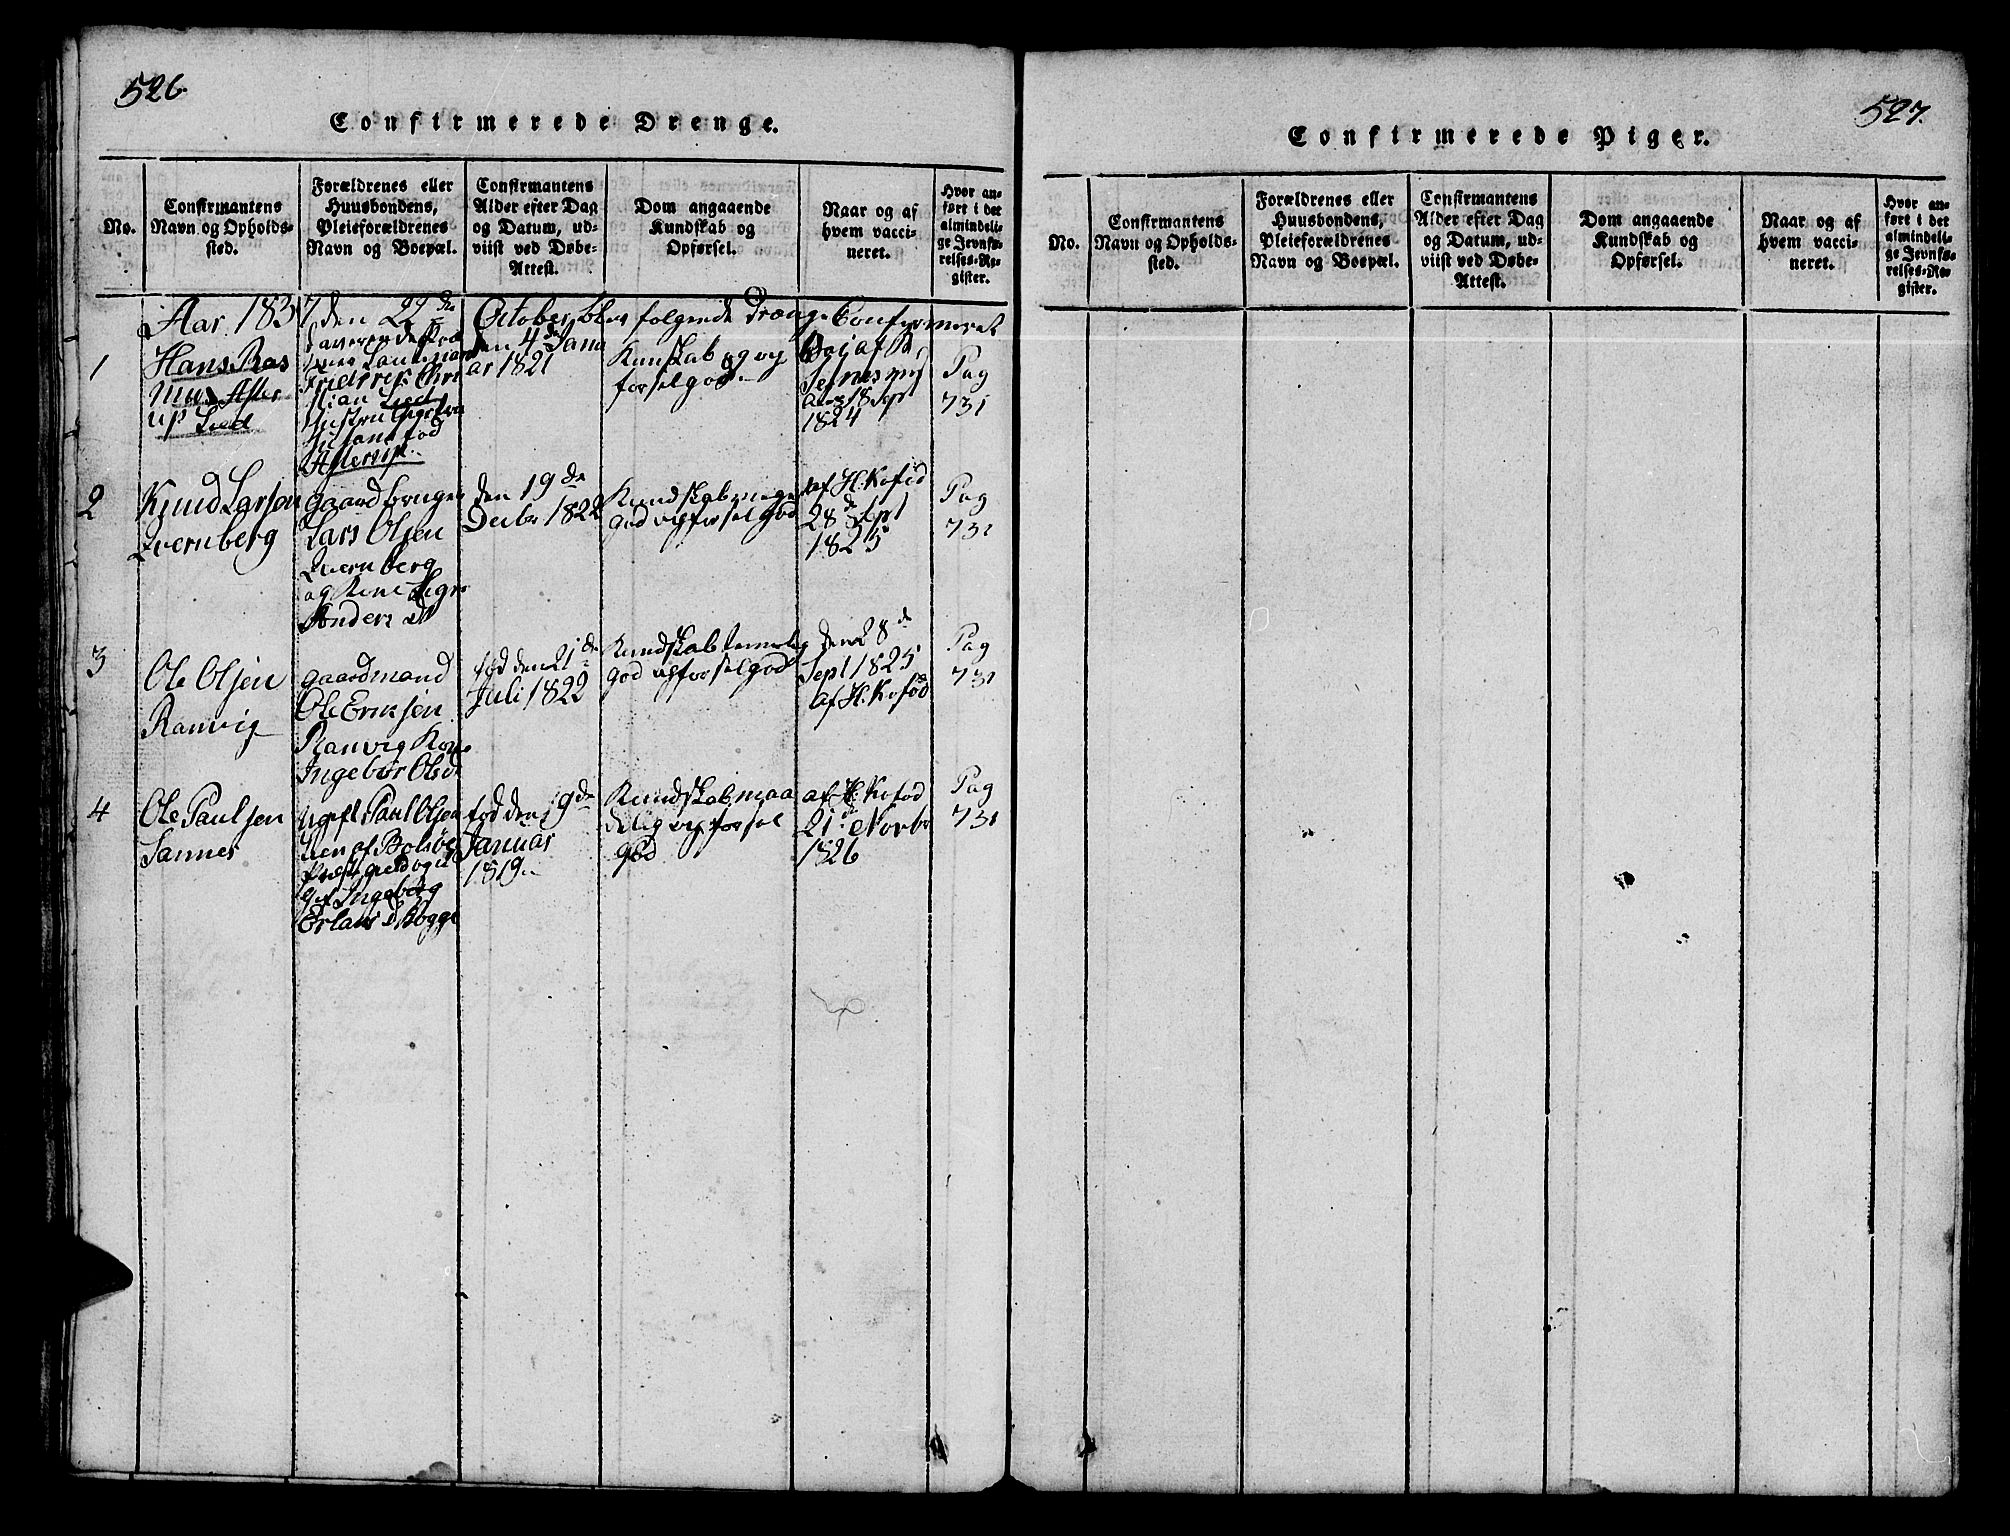 526.
Confirmerede Drenge.
No.
Confirmantens
Navn og Opholds-
sted.
Forældrenes eller
Huusbondens,
Pleieforældrenes
Navn og Boepæl.
Confirmantens
Alder efter Dag
og Datum, ud-
viist ved Døbe-
Attest.
Dom angaaende
Kundskab og
Opførsel.
Naar og af
hvem vacci-
neret.
Hvor an-
ført i det
almindeli-
ge Jevnfø-
relses-Re-
gister.
Aar 1837 den 22de October blev folgende Drænge Confirmeret
1
Hans Ras
mus Aster
up Lied
Friderik Chri
stian Lied
Hustru
fød
Asterup
den 4de Janu
ar 1821
Kunskab og op
forsel god
af
18 Sept
1824
Pag
731
2
Knud Larsen
Qvernberg
gaardbruger
Lars Olsen
Qvernberg
og Kone Sigri
Anders D
den 19de
Decbr 1822
Kundskab
god opforsel god
af H. Kofød
28de Sept
1825
Pag
731
3
Ole Olsen
Ranvig
gaardmand
Ole Eriksen
Ranvig Kone
Ingebør Olsd
fød den 21de
Juli 1822
Kundskab temmelig
god opforsel god
den 28de
Sept 1825
af H. Kofød
Pag
731
4
Ole Paulsen
Sannes
Ugift Paul Olsen
Lien af Bolsøe
Præstegield og u
gift Ingeborg
Erlans D Bogge
fød den 19de
Januar
1819
Kundskab maa
delig opforsel
god
af H. Kofød
21de Novbr
1826
Pag
731
527.
Confirmerede Piger.
No.
Confirmantens
Navn og Opholds-
sted.
Forældrenes eller
Huusbondens,
Pleieforældrenes
Navn og Boepæl.
Confirmantens
Alder efter Dag
og Datum, ud-
viist ved Døbe-
Attest.
Dom angaaende
Kundskab og
Opførsel.
Naar og af
hvem vacci-
neret.
Hvor an-
ført i det
almindeli-
ge Jevnfø-
relses-Re-
gister.